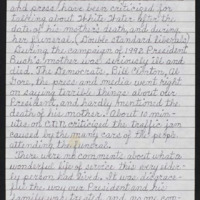 and press have been criticized for
talking about White Water after the
date of his mother's death, and during
her funeral. (Double standard here?)
During the campaign of 1992 President
Bush's mother was seriously ill and
died. The Democrats, Bill Clinton, Al
Gore, the press and media went right
on saying terrible things about our
President, and hardly mentioned the
death of his mother. About 10 min-
utes on CNN criticized the traffic jam
caused by the many cars of the people
attending the funeral.
There were no comments about what a
wonderful life of service this very elder-
ly person had lived. It was disgrace-
ful the way our President and his
family was treated and no one com-